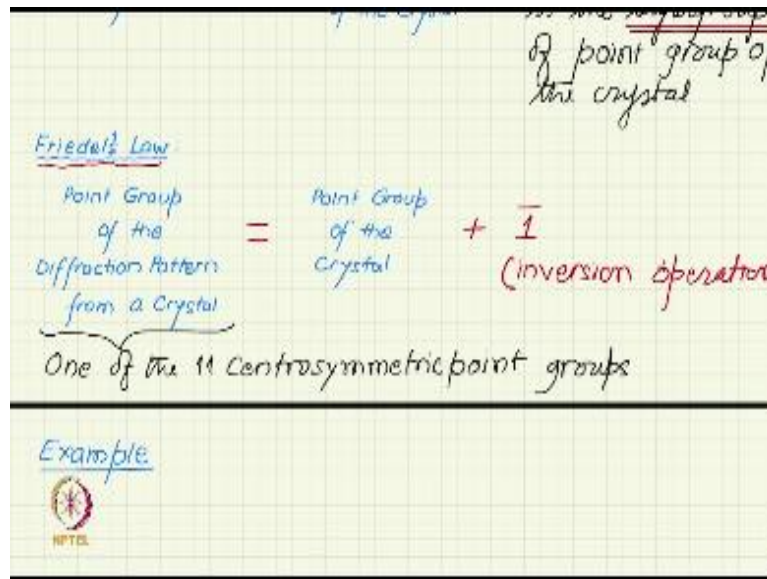 of the Crystal
of point group of
the crystal
Friedel's Law
Point Group
of the
Diffraction Pattern
from a Crystal
=
Point Group
of the
Crystal
+ 1̅
(inversion operation
One of the 11 Centrosymmetric point groups
Example
NPTEL